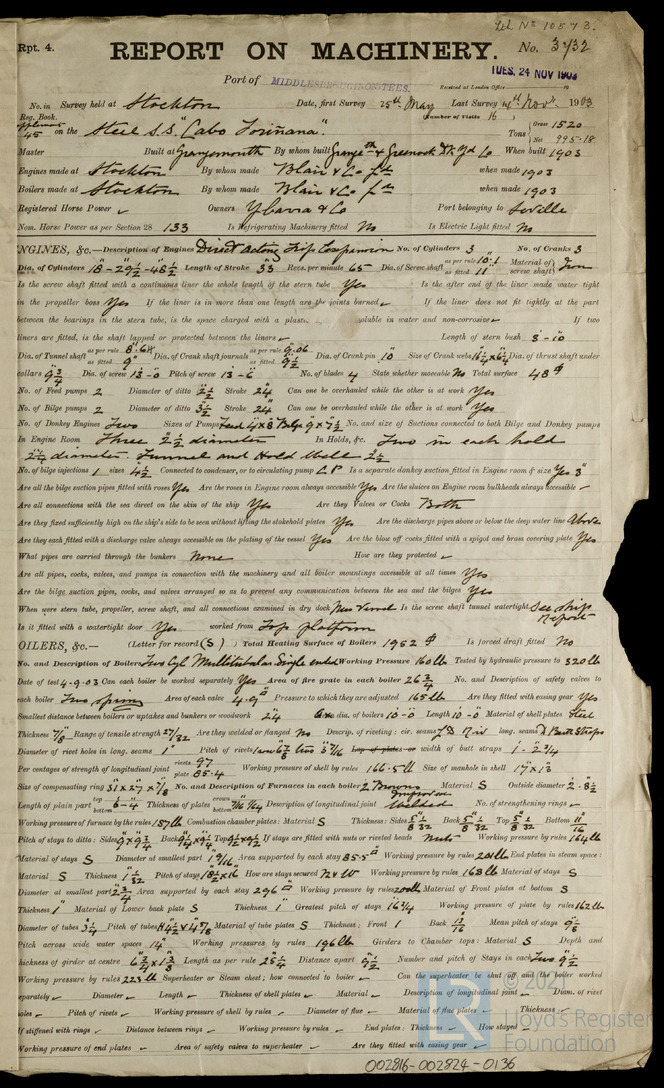 Rpt. 4.
REPORT ON MACHINERY.
No. 3732
Port of MIDDLESBROUGH-ON-TEES.
TUES. 24 NOV 1903
Received at London Office
No. in Survey held at Stockton Date, first Survey 25th May Last Survey Novr 1903
Reg. Book. (Number of Visits 16)
45 on the Steel S.S. "Cabo Toriñana". Tons Gross 1520 Net 995.18
Master Built at Grangemouth By whom built Grangeth & Greenock Dk Yd Co When built 1903
Engines made at Stockton By whom made Blair & Co Ld when made 1903
Boilers made at Stockton By whom made Blair & Co Ld when made 1903
Registered Horse Power Owners Ybarra & Co Port belonging to Seville
Nom. Horse Power as per Section 28 133 Is Refrigerating Machinery fitted No Is Electric Light fitted No
ENGINES, &c.—Description of Engines Direct acting Trip Compansion No. of Cylinders 3 No. of Cranks 3
Dia. of Cylinders 18 - 29½ - 48½ Length of Stroke 33 Revs. per minute 65 Dia. of Screw shaft as per rule 10.1 as fitted 11 Material of screw shaft Iron
Is the screw shaft fitted with a continuous liner the whole length of the stern tube Yes Is the after end of the liner made water tight
in the propeller boss Yes If the liner is in more than one length are the joints burned If the liner does not fit tightly at the part
between the bearings in the stern tube, is the space charged with a plastic soluble in water and non-corrosive If two
liners are fitted, is the shaft lapped or protected between the liners Length of stern bush 3-10
Dia. of Tunnel shaft as per rule 8.64 as fitted 9 Dia. of Crank shaft journals as per rule 9.06 as fitted 9½ Dia. of Crank pin 10 Size of Crank webs 16¼x6¼ Dia. of thrust shaft under
collars 9¾ Dia. of screw 13-0 Pitch of screw 13-6 No. of blades 4 State whether moveable No Total surface 48
No. of Feed pumps 2 Diameter of ditto 2½ Stroke 24 Can one be overhauled while the other is at work Yes
No. of Bilge pumps 2 Diameter of ditto 3½ Stroke 24 Can one be overhauled while the other is at work Yes
No. of Donkey Engines Two Sizes of Pumps Feed 4x8 Bilge 9x7½ No. and size of Suctions connected to both Bilge and Donkey pumps
In Engine Room Three 2½ diameter In Holds, &c. Two in each hold
2¼ diameter. Tunnel and Hold Well 2½
No. of bilge injections 1 sizes 4½ Connected to condenser, or to circulating pump C.P Is a separate donkey suction fitted in Engine room & size Yes 3"
Are all the bilge suction pipes fitted with roses Yes Are the roses in Engine room always accessible Yes Are the sluices on Engine room bulkheads always accessible
Are all connections with the sea direct on the skin of the ship Yes Are they Valves or Cocks Both
Are they fixed sufficiently high on the ship's side to be seen without lifting the stokehold plates Yes Are the discharge pipes above or below the deep water line Above
Are they each fitted with a discharge valve always accessible on the plating of the vessel Yes Are the blow off cocks fitted with a spigot and brass covering plate Yes
What pipes are carried through the bunkers None How are they protected
Are all pipes, cocks, valves, and pumps in connection with the machinery and all boiler mountings accessible at all times Yes
Are the bilge suction pipes, cocks, and valves arranged so as to prevent any communication between the sea and the bilges Yes
When were stern tube, propeller, screw shaft, and all connections examined in dry dock New Vessel Is the screw shaft tunnel watertight See ship Report
Is it fitted with a watertight door Yes worked from Top platform
BOILERS, &c.— (Letter for record (S) ) Total Heating Surface of Boilers 1962 Is forced draft fitted No
No. and Description of Boilers Two Cyl Multitubular Single ended Working Pressure 160 lb Tested by hydraulic pressure to 320 lb
Date of test 4.9.03 Can each boiler be worked separately Yes Area of fire grate in each boiler 26¾ No. and Description of safety valves to
each boiler Two spring Area of each valve 4.9 Pressure to which they are adjusted 165 lb Are they fitted with easing gear Yes
Smallest distance between boilers or uptakes and bunkers or woodwork 24 dia. of boilers 10-0 Length 10-0 Material of shell plates Steel
Thickness 7/8 Range of tensile strength 27/32 Are they welded or flanged No Descrip. of riveting: cir. seams L D Riv long. seams D Butt Straps
Diameter of rivet holes in long. seams 1" Pitch of rivets Lap of plates or width of butt straps 1-2¾
Per centages of strength of longitudinal joint rivets 97 plate 85.4 Working pressure of shell by rules 166.5 lb Size of manhole in shell 17x13
Size of compensating ring 31x27x7/8 No. and Description of Furnaces in each boiler 2 Browns Improved Material S Outside diameter 2-8½
Length of plain part Thickness of plates Description of longitudinal joint Welded No. of strengthening rings
Working pressure of furnace by the rules 187 lb Combustion chamber plates: Material S Thickness: Sides Back Top Bottom 11/16
Pitch of stays to ditto: Sides 9x9¼ Back 9¼x9¼ Top 9½x9½ If stays are fitted with nuts or riveted heads Nuts Working pressure by rules 164 lb
Material of stays S Diameter at smallest part 1 9/16 Area supported by each stay 85.5 Working pressure by rules 201 lb End plates in steam space:
Material S Thickness 1 1/32 Pitch of stays 18½x16 How are stays secured N & W Working pressure by rules 168 lb Material of stays S
Diameter at smallest part 2¾ Area supported by each stay 296 Working pressure by rules 200 lb Material of Front plates at bottom S
Thickness 1" Material of Lower back plate S Thickness 1" Greatest pitch of stays 16¾ Working pressure of plate by rules 162 lb
Diameter of tubes 3¼ Pitch of tubes 4½x4 5/8 Material of tube plates S Thickness: Front 1 Back 13/16 Mean pitch of stays 9 1/8
Pitch across wide water spaces 14 Working pressures by rules 196 lb Girders to Chamber tops: Material S Depth and
thickness of girder at centre 6¾x1 3/8 Length as per rule 25¼ Distance apart 9½ Number and pitch of Stays in each Two 9½
Working pressure by rules 223 lb Superheater or Steam chest; how connected to boiler Can the superheater be shut off and the boiler worked
separately Diameter Length Thickness of shell plates Material Description of longitudinal joint Diam. of rivet
holes Pitch of rivets Working pressure of shell by rules Diameter of flue Material of flue plates Thickness
If stiffened with rings Distance between rings Working pressure by rules End plates: Thickness How stayed
Working pressure of end plates Area of safety valves to superheater Are they fitted with easing gear
© 202
Lloyd's Register
Foundation
002816-002824-0136